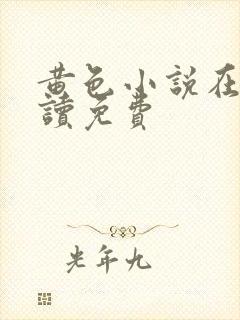 黄色小說在
讀免費
光年九